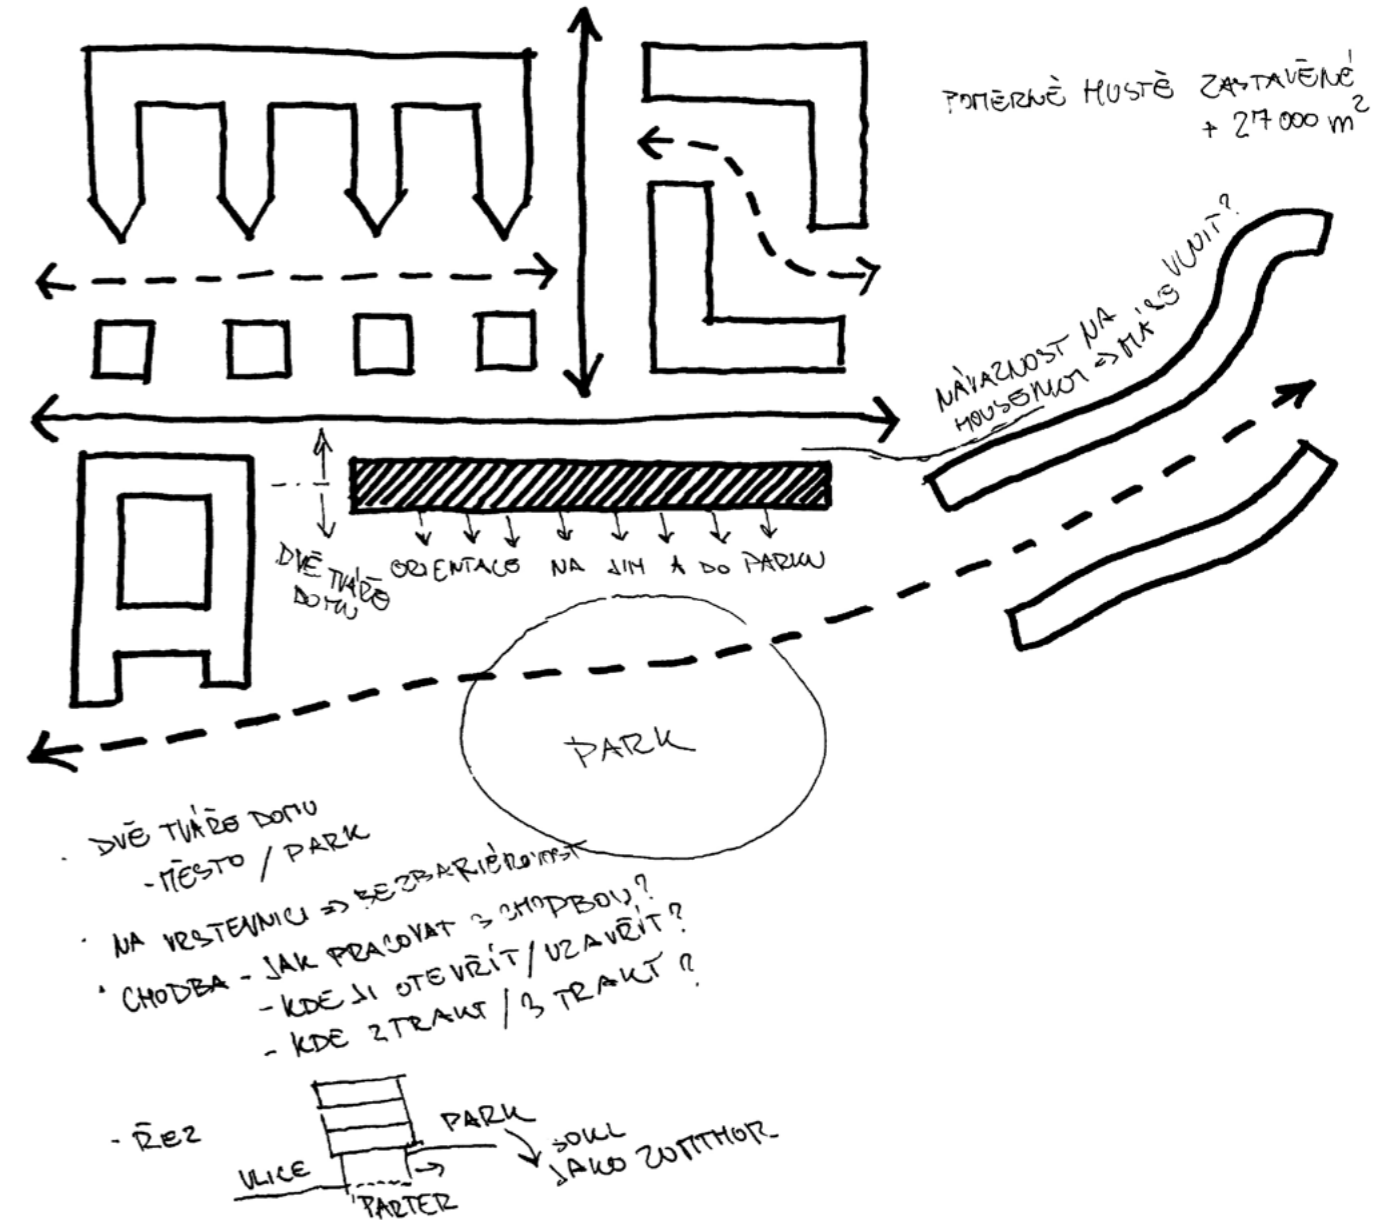 POMĚRNĚ HUSTĚ ZASTAVĚNÉ
+ 27 000 m²
NÁVAZNOST NA
HOUSENKU => MÁ SE VLNIT?
DVĚ TVÁŘE
DOMU
ORIENTACE NA JIH A DO PARKU
PARK
· DVĚ TVÁŘE DOMU
- MĚSTO / PARK
· NA VRSTEVNICI => BEZBARIÉROVOST
· CHODBA - JAK PRACOVAT S CHODBOU?
- KDE JI OTEVŘÍT / UZAVŘÍT?
- KDE 2 TRAKT / 3 TRAKT?
- ŘEZ
PARK
SOKL
JAKO ZUMTHOR
ULICE
PARTER